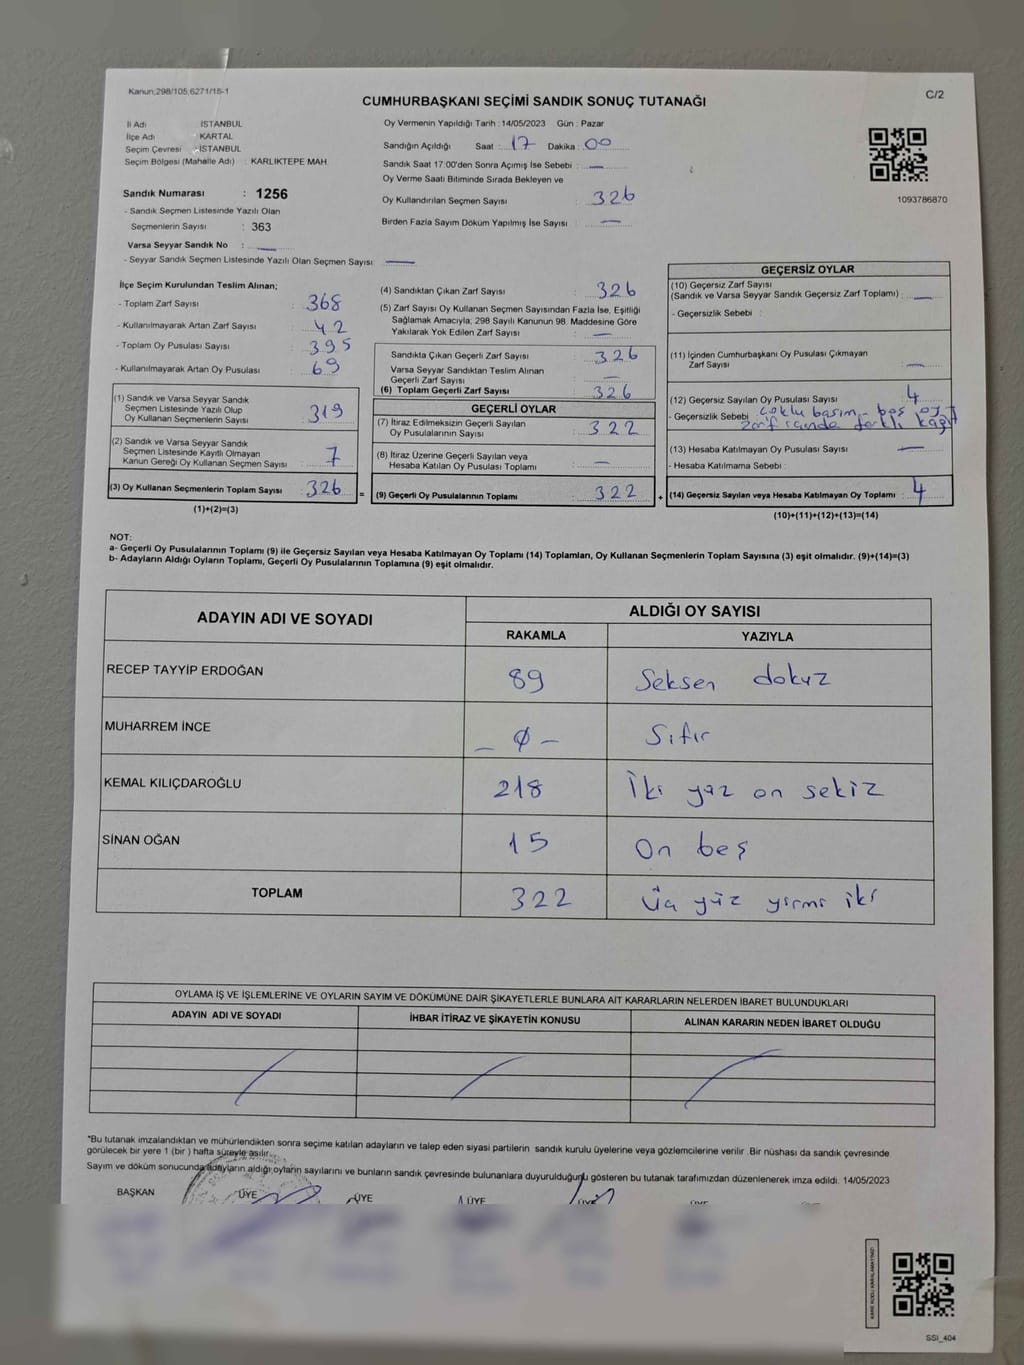 Kanun;298/105,6271/16-1
C/2
CUMHURBAŞKANI SEÇİMİ SANDIK SONUÇ TUTANAĞI
İl Adı : İSTANBUL
İlçe Adı : KARTAL
Seçim Çevresi : İSTANBUL
Seçim Bölgesi (Mahalle Adı) : KARLIKTEPE MAH.
Sandık Numarası : 1256
- Sandık Seçmen Listesinde Yazılı Olan
Seçmenlerin Sayısı : 363
Varsa Seyyar Sandık No : —
- Seyyar Sandık Seçmen Listesinde Yazılı Olan Seçmen Sayısı: —
Oy Vermenin Yapıldığı Tarih : 14/05/2023 Gün : Pazar
Sandığın Açıldığı Saat : 17 Dakika : 00
Sandık Saat 17:00'den Sonra Açımış İse Sebebi : —
Oy Verme Saati Bitiminde Sırada Bekleyen ve
Oy Kullandırılan Seçmen Sayısı : 326
Birden Fazla Sayım Döküm Yapılmış İse Sayısı : —
1093786870
İlçe Seçim Kurulundan Teslim Alınan;
- Toplam Zarf Sayısı : 368
- Kullanılmayarak Artan Zarf Sayısı : 42
- Toplam Oy Pusulası Sayısı : 395
- Kullanılmayarak Artan Oy Pusulası : 69
(1) Sandık ve Varsa Seyyar Sandık
Seçmen Listesinde Yazılı Olup
Oy Kullanan Seçmenlerin Sayısı : 319
(2) Sandık ve Varsa Seyyar Sandık
Seçmen Listesinde Kayıtlı Olmayan
Kanun Gereği Oy Kullanan Seçmen Sayısı : 7
(3) Oy Kullanan Seçmenlerin Toplam Sayısı : 326 =
(1)+(2)=(3)
(4) Sandıktan Çıkan Zarf Sayısı : 326
(5) Zarf Sayısı Oy Kullanan Seçmen Sayısından Fazla İse, Eşitliği
Sağlamak Amacıyla; 298 Sayılı Kanunun 98. Maddesine Göre
Yakılarak Yok Edilen Zarf Sayısı : —
Sandıkta Çıkan Geçerli Zarf Sayısı : 326
Varsa Seyyar Sandıktan Teslim Alınan
Geçerli Zarf Sayısı : —
(6) Toplam Geçerli Zarf Sayısı : 326
GEÇERLİ OYLAR
(7) İtiraz Edilmeksizin Geçerli Sayılan
Oy Pusulalarının Sayısı : 322
(8) İtiraz Üzerine Geçerli Sayılan veya
Hesaba Katılan Oy Pusulası Toplamı : —
(9) Geçerli Oy Pusulalarının Toplamı : 322 +
GEÇERSİZ OYLAR
(10) Geçersiz Zarf Sayısı
(Sandık ve Varsa Seyyar Sandık Geçersiz Zarf Toplamı) : —
- Geçersizlik Sebebi :
(11) İçinden Cumhurbaşkanı Oy Pusulası Çıkmayan
Zarf Sayısı : —
(12) Geçersiz Sayılan Oy Pusulası Sayısı : 4
- Geçersizlik Sebebi : çoklu basım - boş oy
zarf içinde farklı kağıt
(13) Hesaba Katılmayan Oy Pusulası Sayısı : —
- Hesaba Katılmama Sebebi :
(14) Geçersiz Sayılan veya Hesaba Katılmayan Oy Toplamı : 4
(10)+(11)+(12)+(13)=(14)
NOT:
a- Geçerli Oy Pusulalarının Toplamı (9) ile Geçersiz Sayılan veya Hesaba Katılmayan Oy Toplamı (14) Toplamları, Oy Kullanan Seçmenlerin Toplam Sayısına (3) eşit olmalıdır. (9)+(14)=(3)
b- Adayların Aldığı Oyların Toplamı, Geçerli Oy Pusulalarının Toplamına (9) eşit olmalıdır.
ADAYIN ADI VE SOYADI ALDIĞI OY SAYISI
RAKAMLA YAZIYLA
RECEP TAYYİP ERDOĞAN 89 Seksen dokuz
MUHARREM İNCE – 0 – Sıfır
KEMAL KILIÇDAROĞLU 218 İki yüz on sekiz
SİNAN OĞAN 15 On beş
TOPLAM 322 Üç yüz yirmi iki
OYLAMA İŞ VE İŞLEMLERİNE VE OYLARIN SAYIM VE DÖKÜMÜNE DAİR ŞİKAYETLERLE BUNLARA AİT KARARLARIN NELERDEN İBARET BULUNDUKLARI
ADAYIN ADI VE SOYADI İHBAR İTİRAZ VE ŞİKAYETİN KONUSU ALINAN KARARIN NEDEN İBARET OLDUĞU
*Bu tutanak imzalandıktan ve mühürlendikten sonra seçime katılan adayların ve talep eden siyasi partilerin sandık kurulu üyelerine veya gözlemcilerine verilir .Bir nüshası da sandık çevresinde
görülecek bir yere 1 (bir ) hafta süreyle asılır.
Sayım ve döküm sonucunda adayların aldığı oyların sayılarını ve bunların sandık çevresinde bulunanlara duyurulduğunu gösteren bu tutanak tarafımızdan düzenlenerek imza edildi. 14/05/2023
BAŞKAN ÜYE ÜYE ÜYE ÜYE
KARE KODU KARALAMAYINIZ!
SSI_404